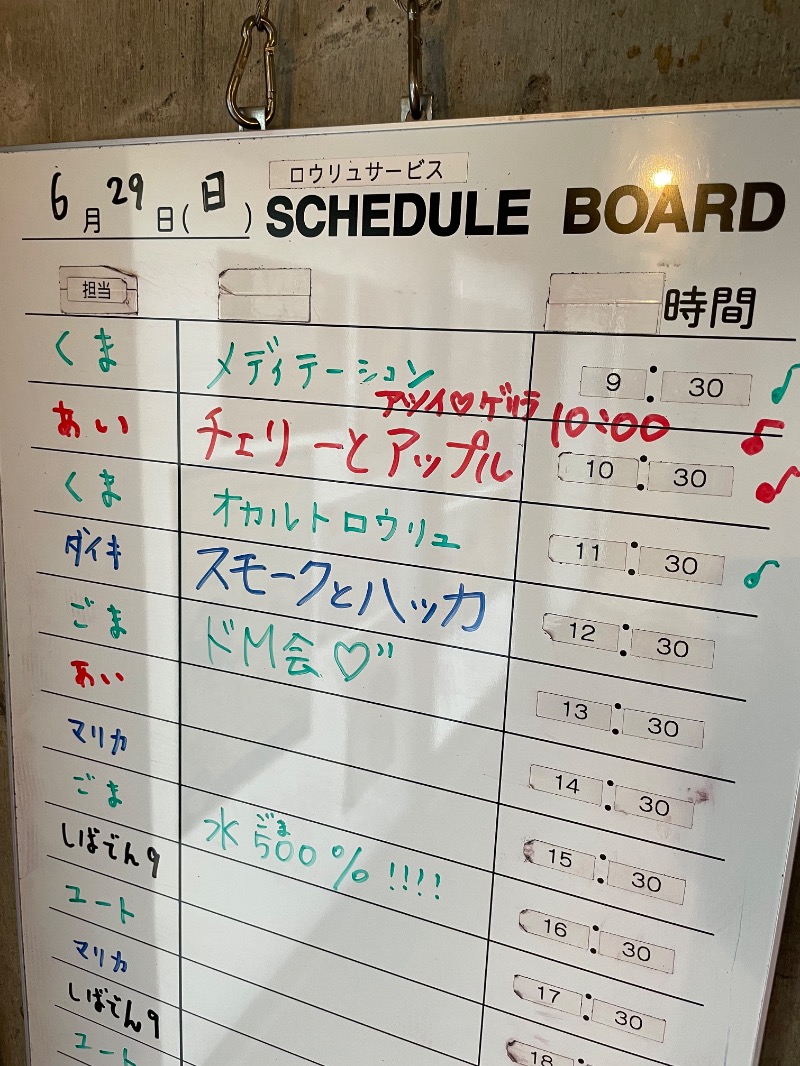 6月29日(日)
ロウリュサービス
SCHEDULE BOARD
担当 時間
くま メディテーション 9:30 ♪
アツイ♡ゲリラ 10:00 ♫
あい チェリーとアップル 10:30 ♪
くま オカルトロウリュ 11:30 ♪
ダイキ スモークとハッカ 12:30
ごま ドM会♡” 13:30
あい 14:30
マリカ 15:30
ごま 水ごま500%!!!! 16:30
しばでん9 17:30
ユート 18:
マリカ
しばでん9
ユート